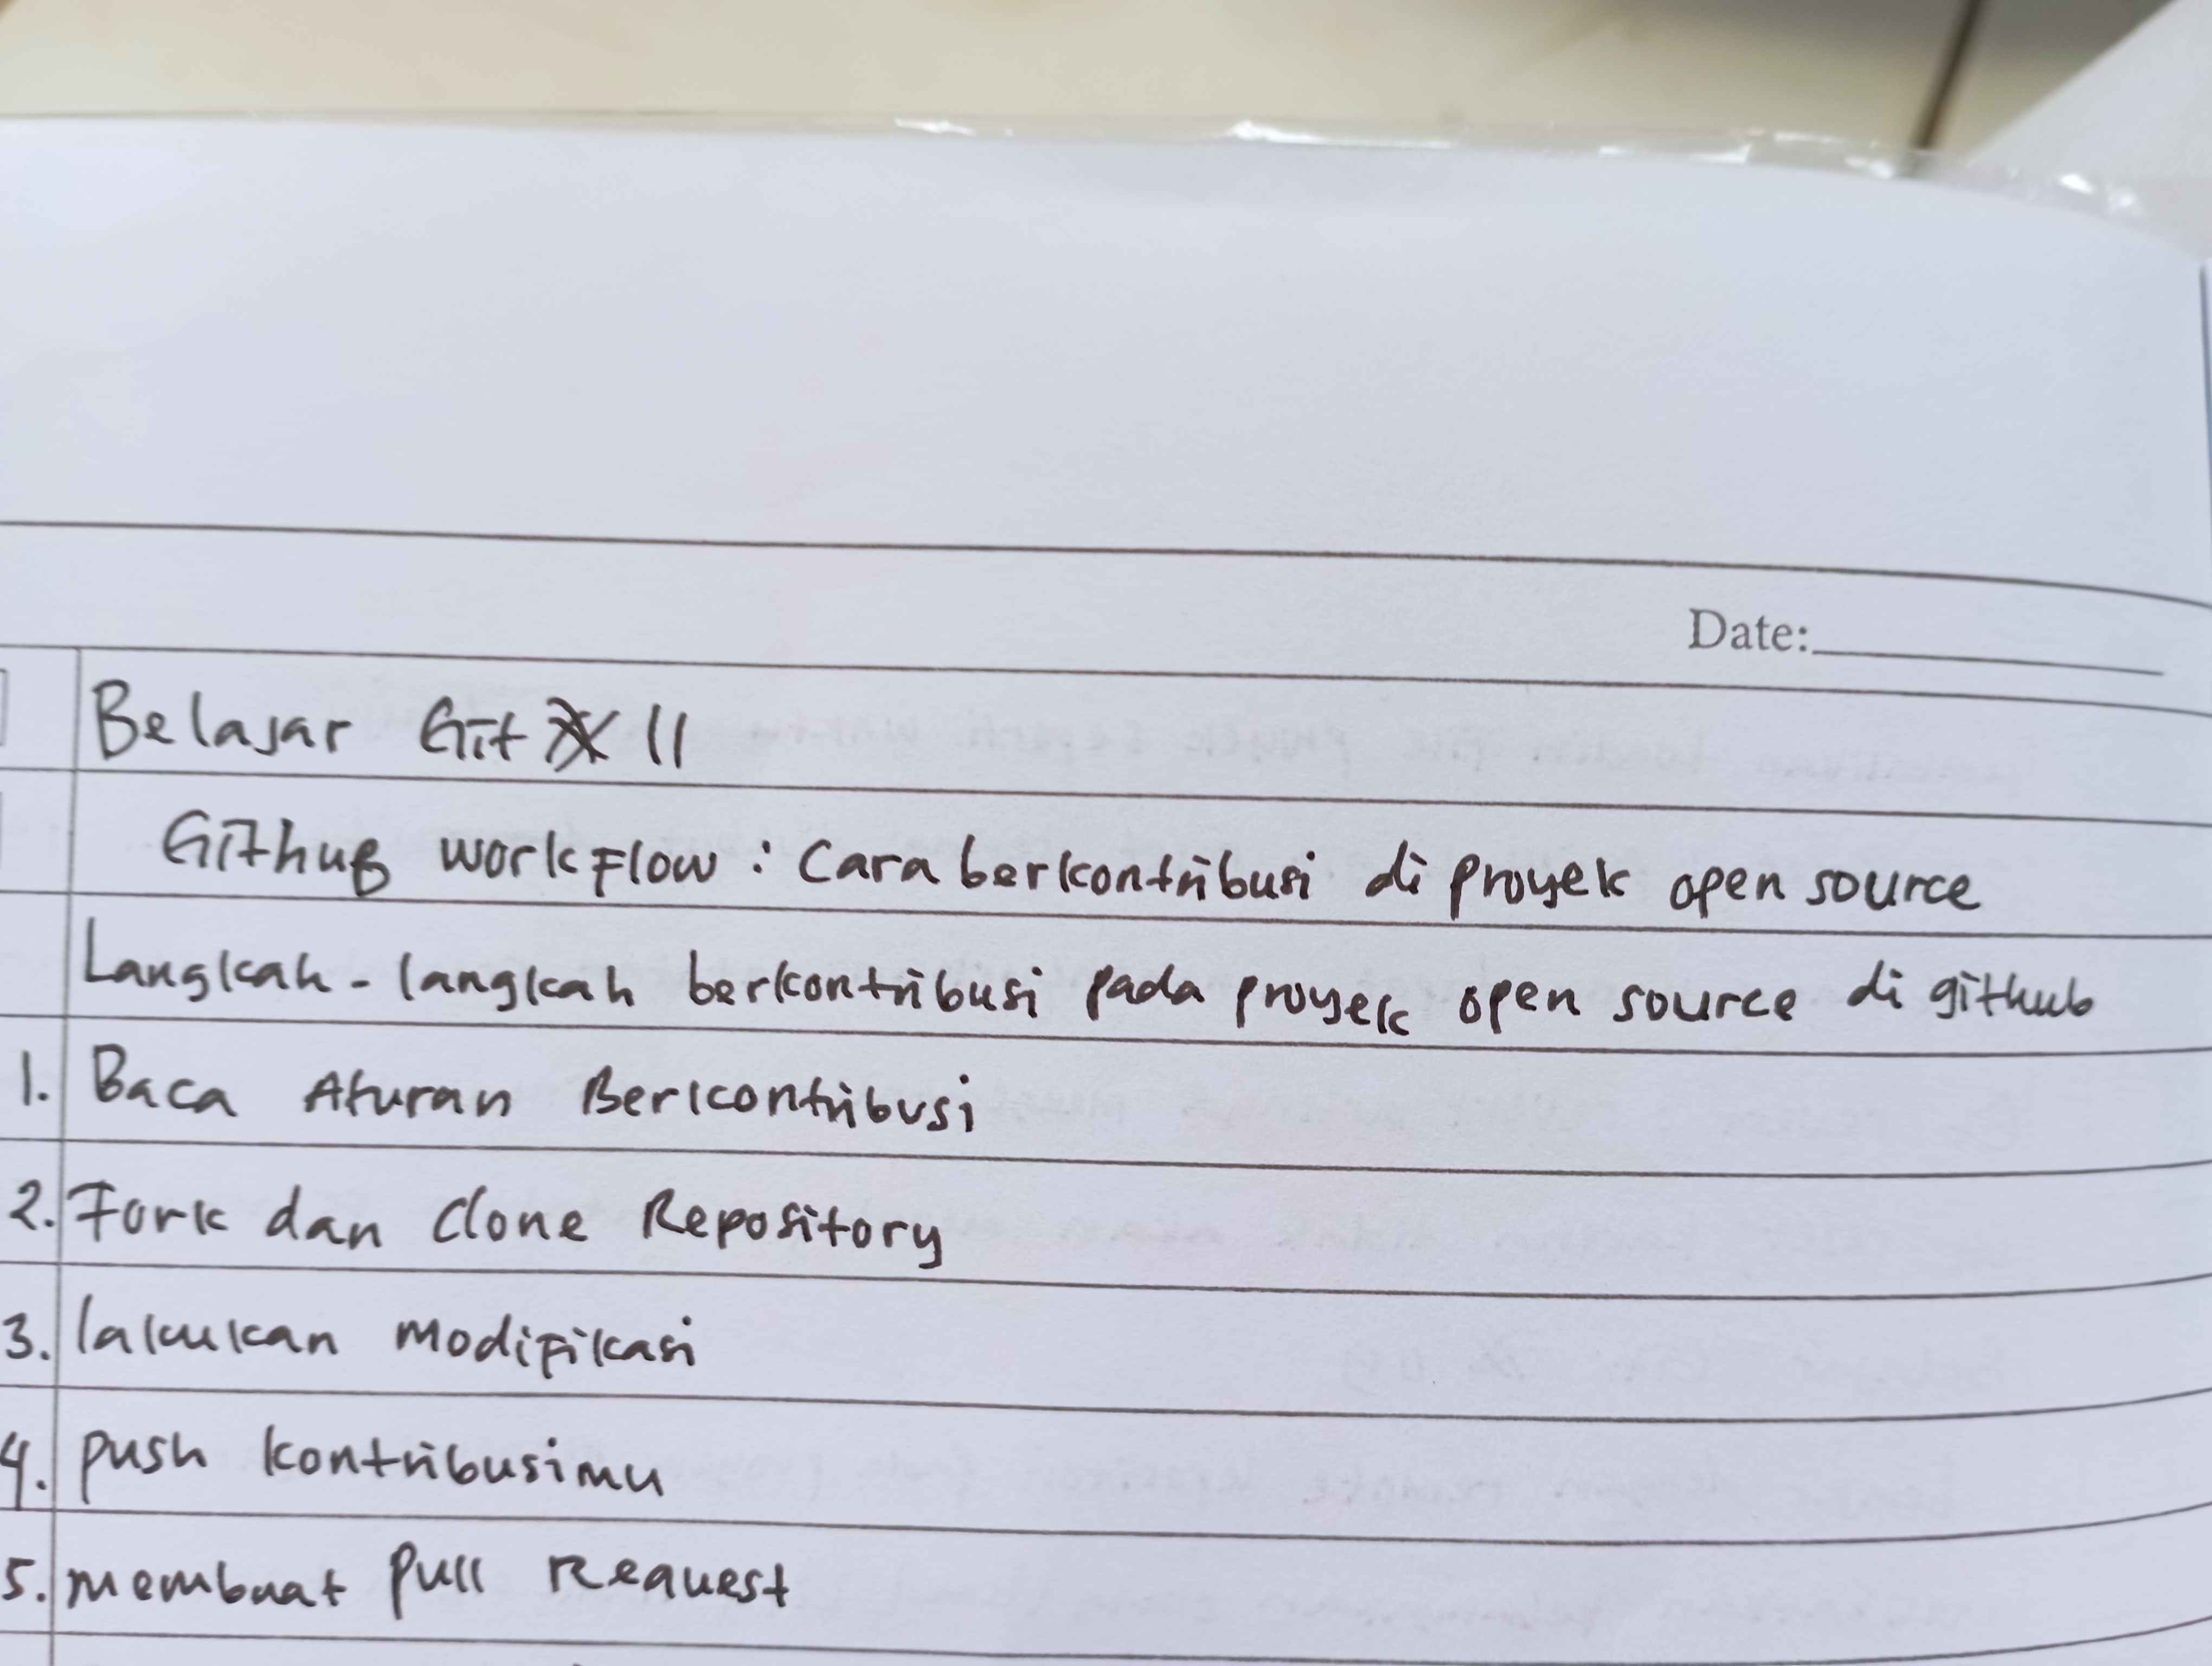 Date:
Belajar Git 11
Github workflow : Cara berkontribusi di proyek open source
Langkah - langkah berkontribusi pada proyek open source di github
1. Baca Aturan Berkontribusi
2. Fork dan Clone Repository
3. lakukan modifikasi
4. push kontribusimu
5. membuat pull Request